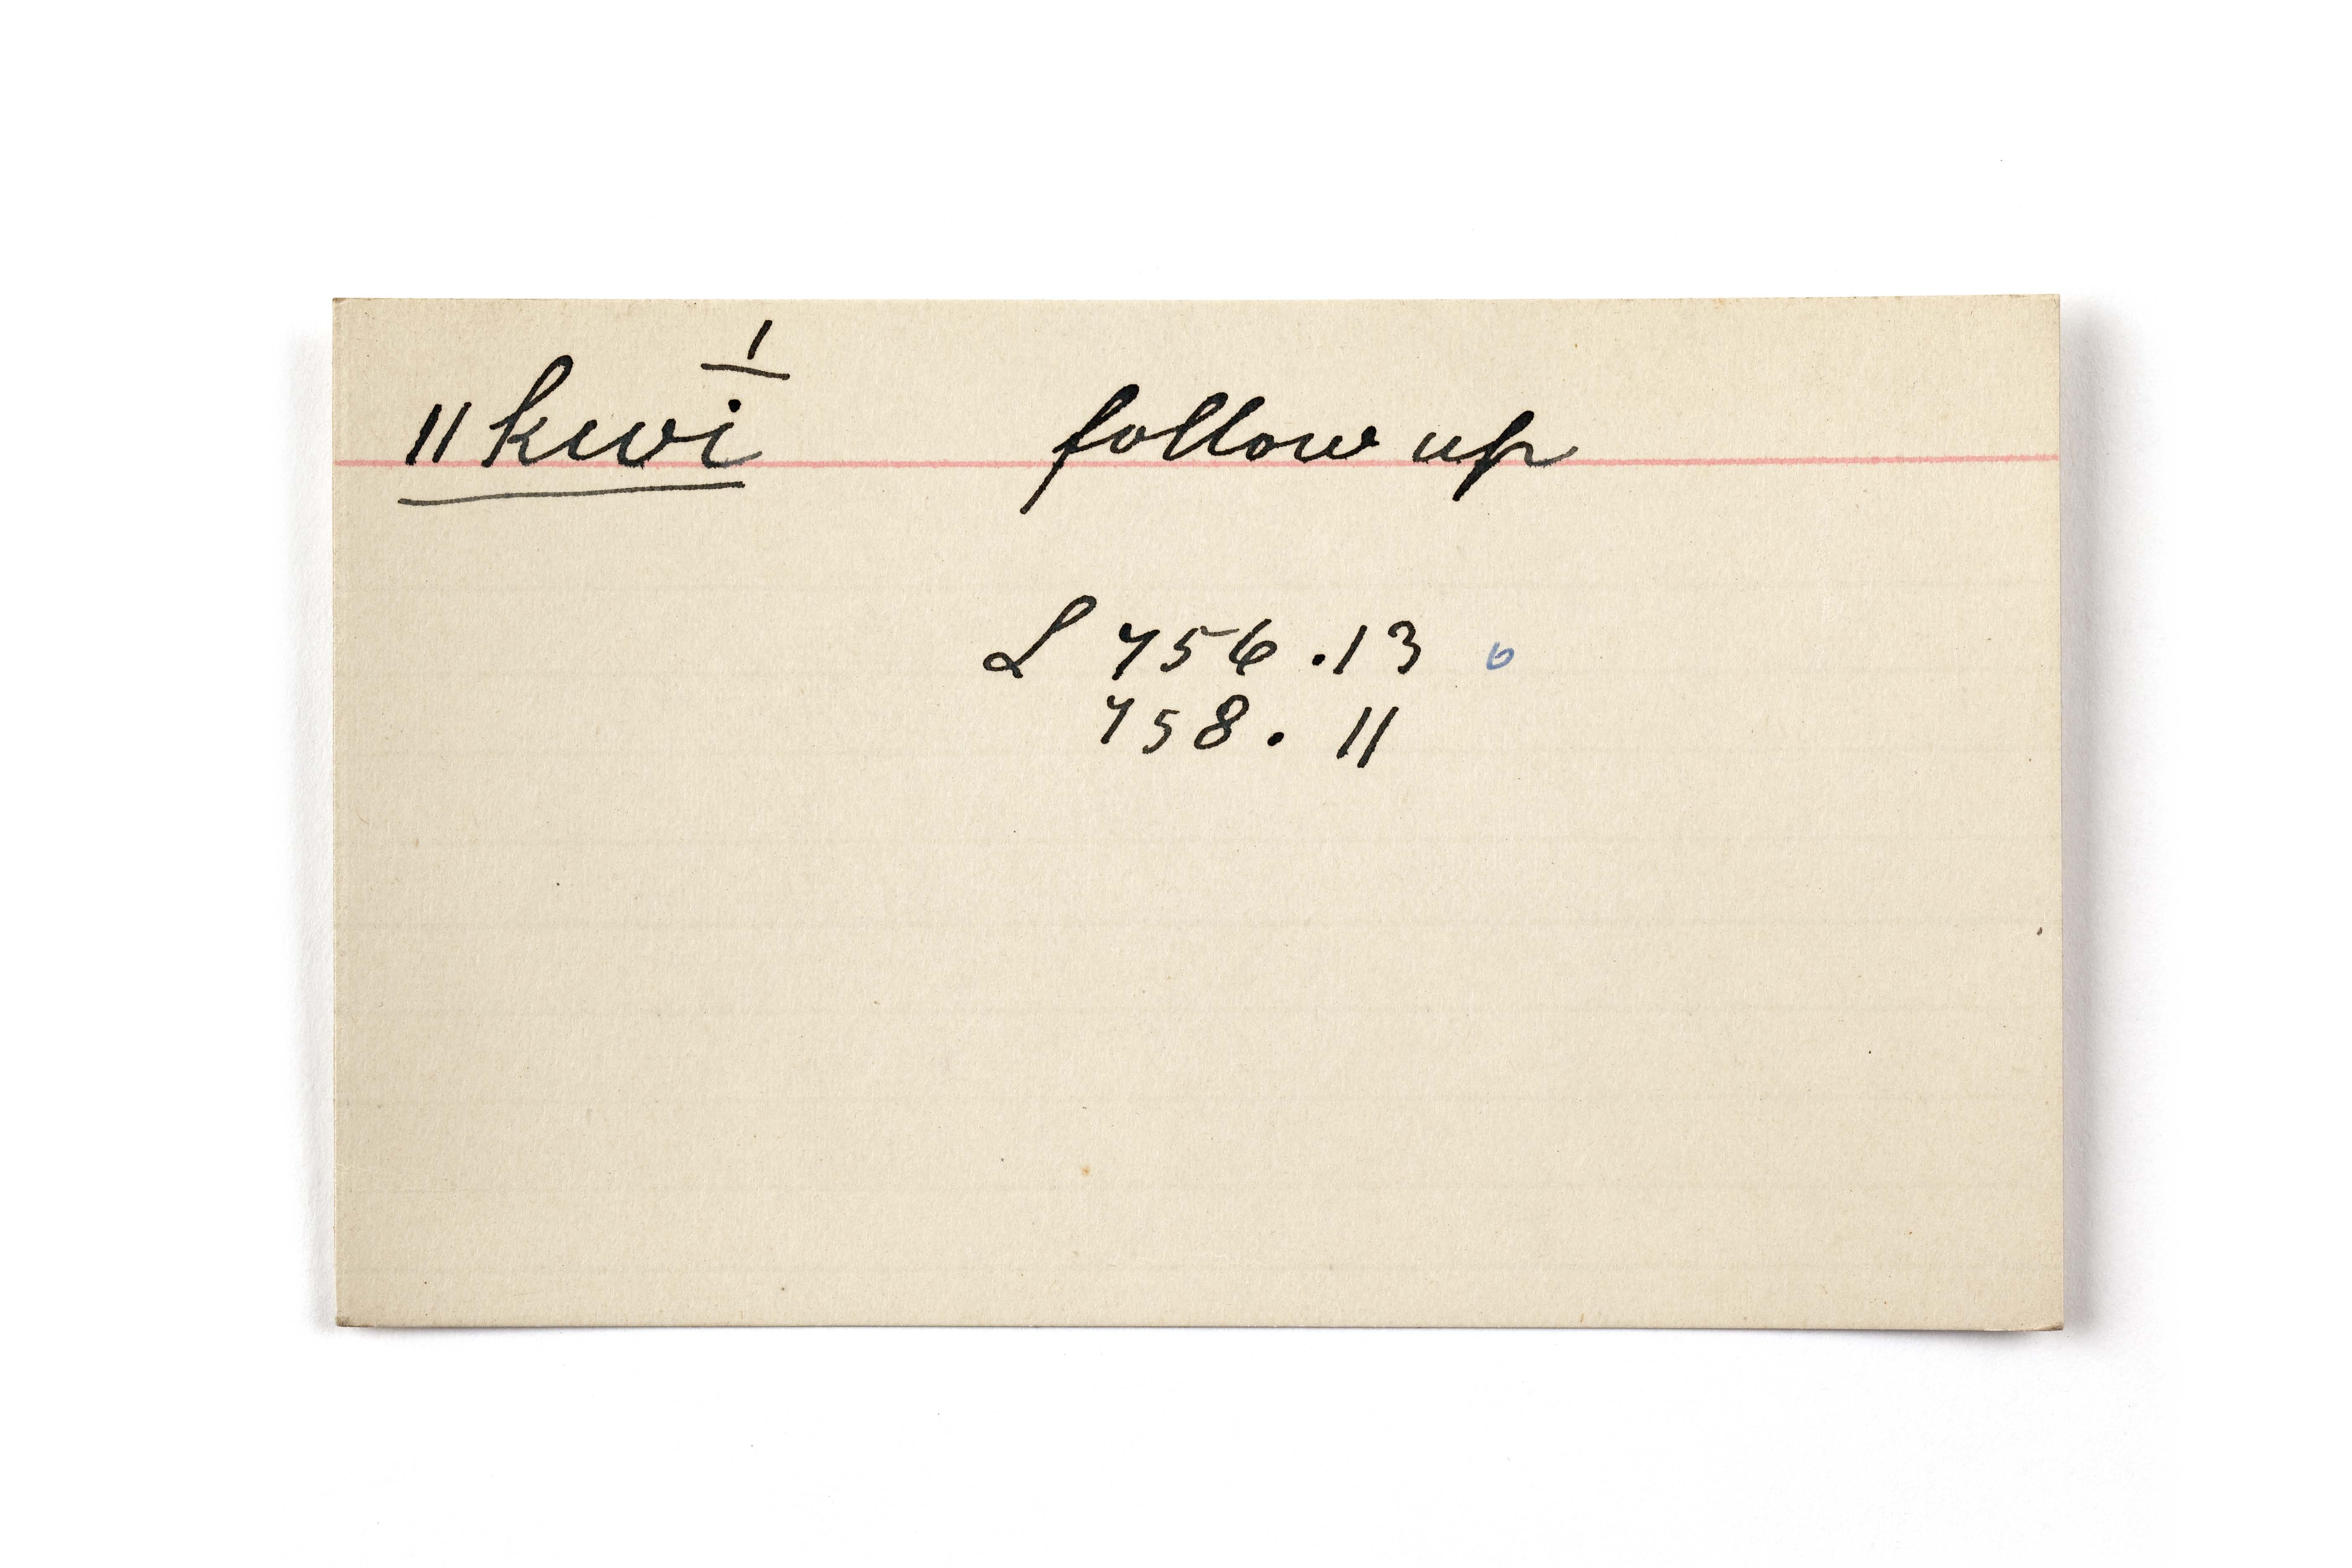 ǁkwi̱̍ follow up
L 756.13 b
758. 11